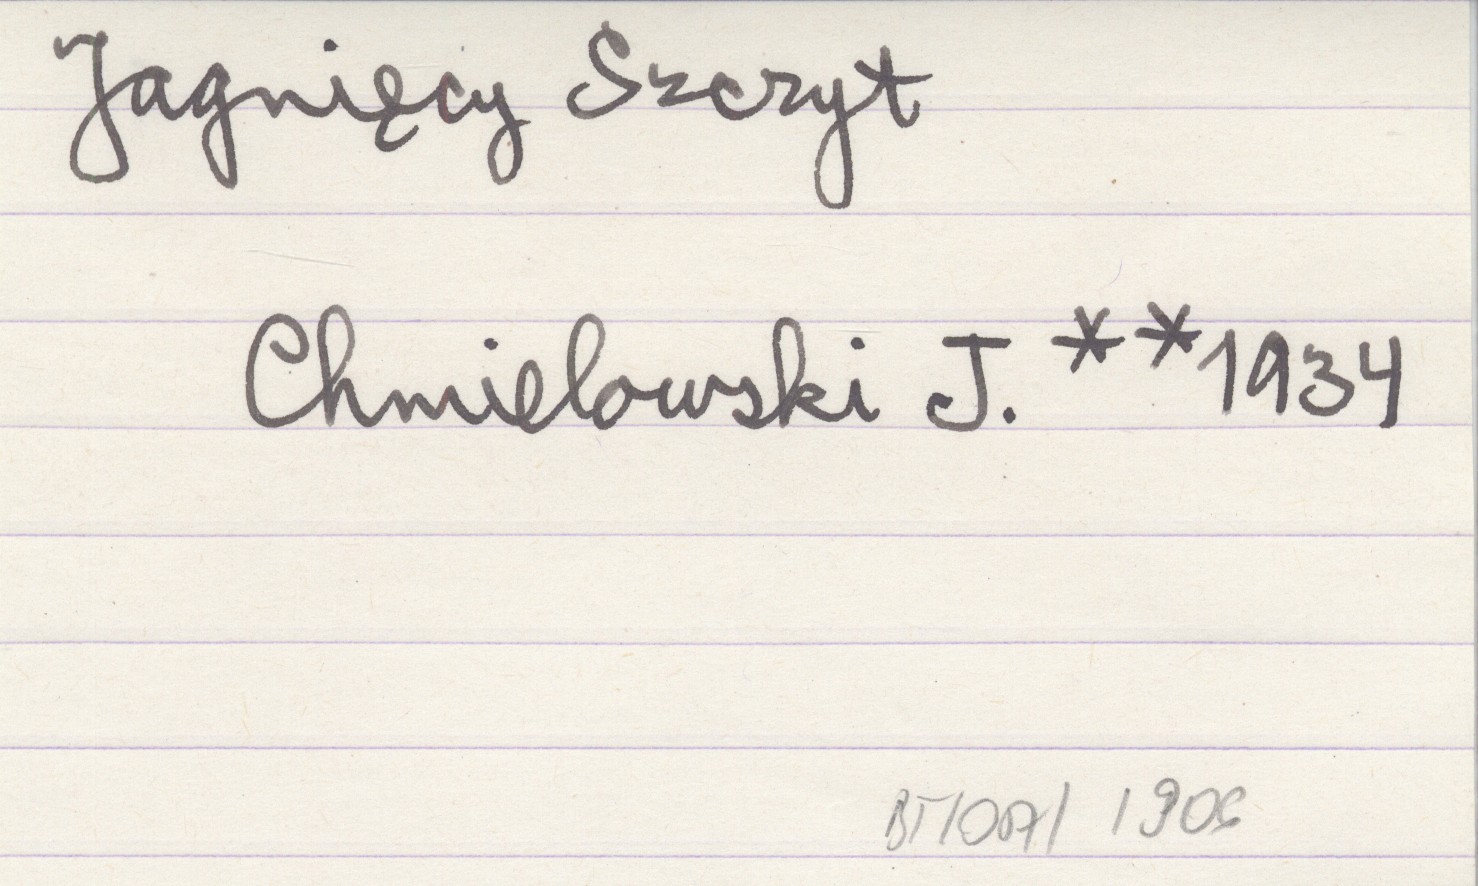 Jagnięcy Szczyt
Chmielowski J. **1934
1906